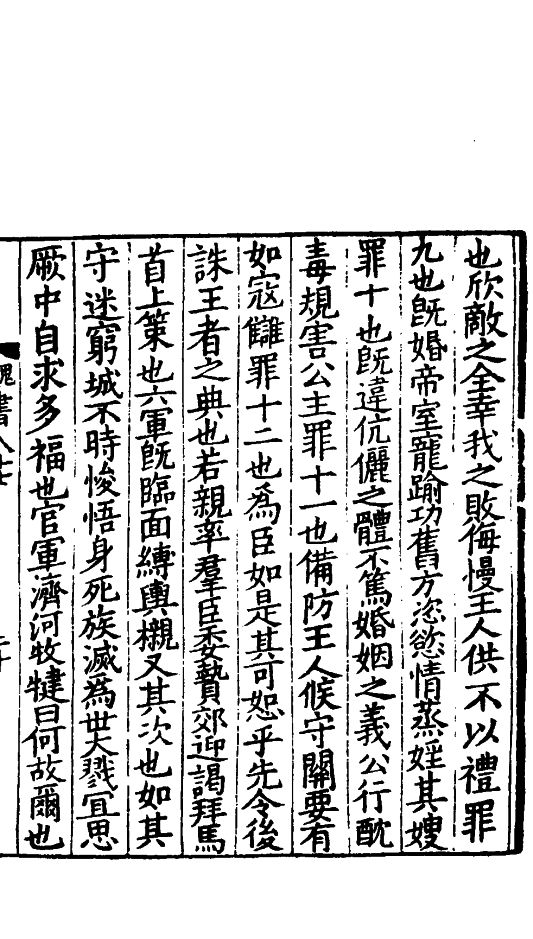 也欣敵之全幸我之敗侮慢王人供不以禮罪
九也旣婚帝室寵踰功舊方恣慾情蒸婬其嫂
罪十也旣違伉儷之體不篤婚姻之義公行酖
毒規害公主罪十一也備防王人候守關要有
如寇讎罪十二也爲臣如是其可恕乎先令後
誅王者之典也若親率羣臣委贄郊迎謁拜馬
首上策也六軍旣臨面縛輿櫬又其次也如其
守迷窮城不時悛悟身死族滅爲世大戮宜思
厥中自求多福也官軍濟河牧犍曰何故爾也